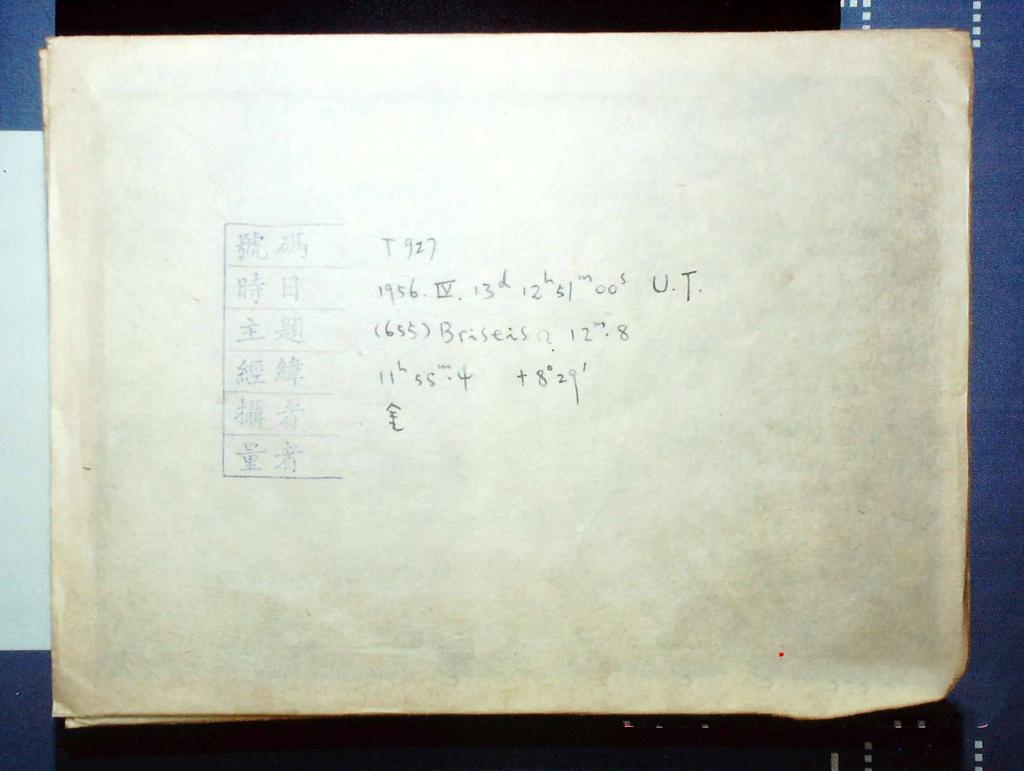 號碼 T 927
時日 1956. IV. 13ᵈ 12ʰ 51ᵐ 00ˢ U.T.
主題 (655) Briseis ? 12ᵐ.8
經緯 11ʰ 55ᵐ.4 +8°29'
攝者 金
量者